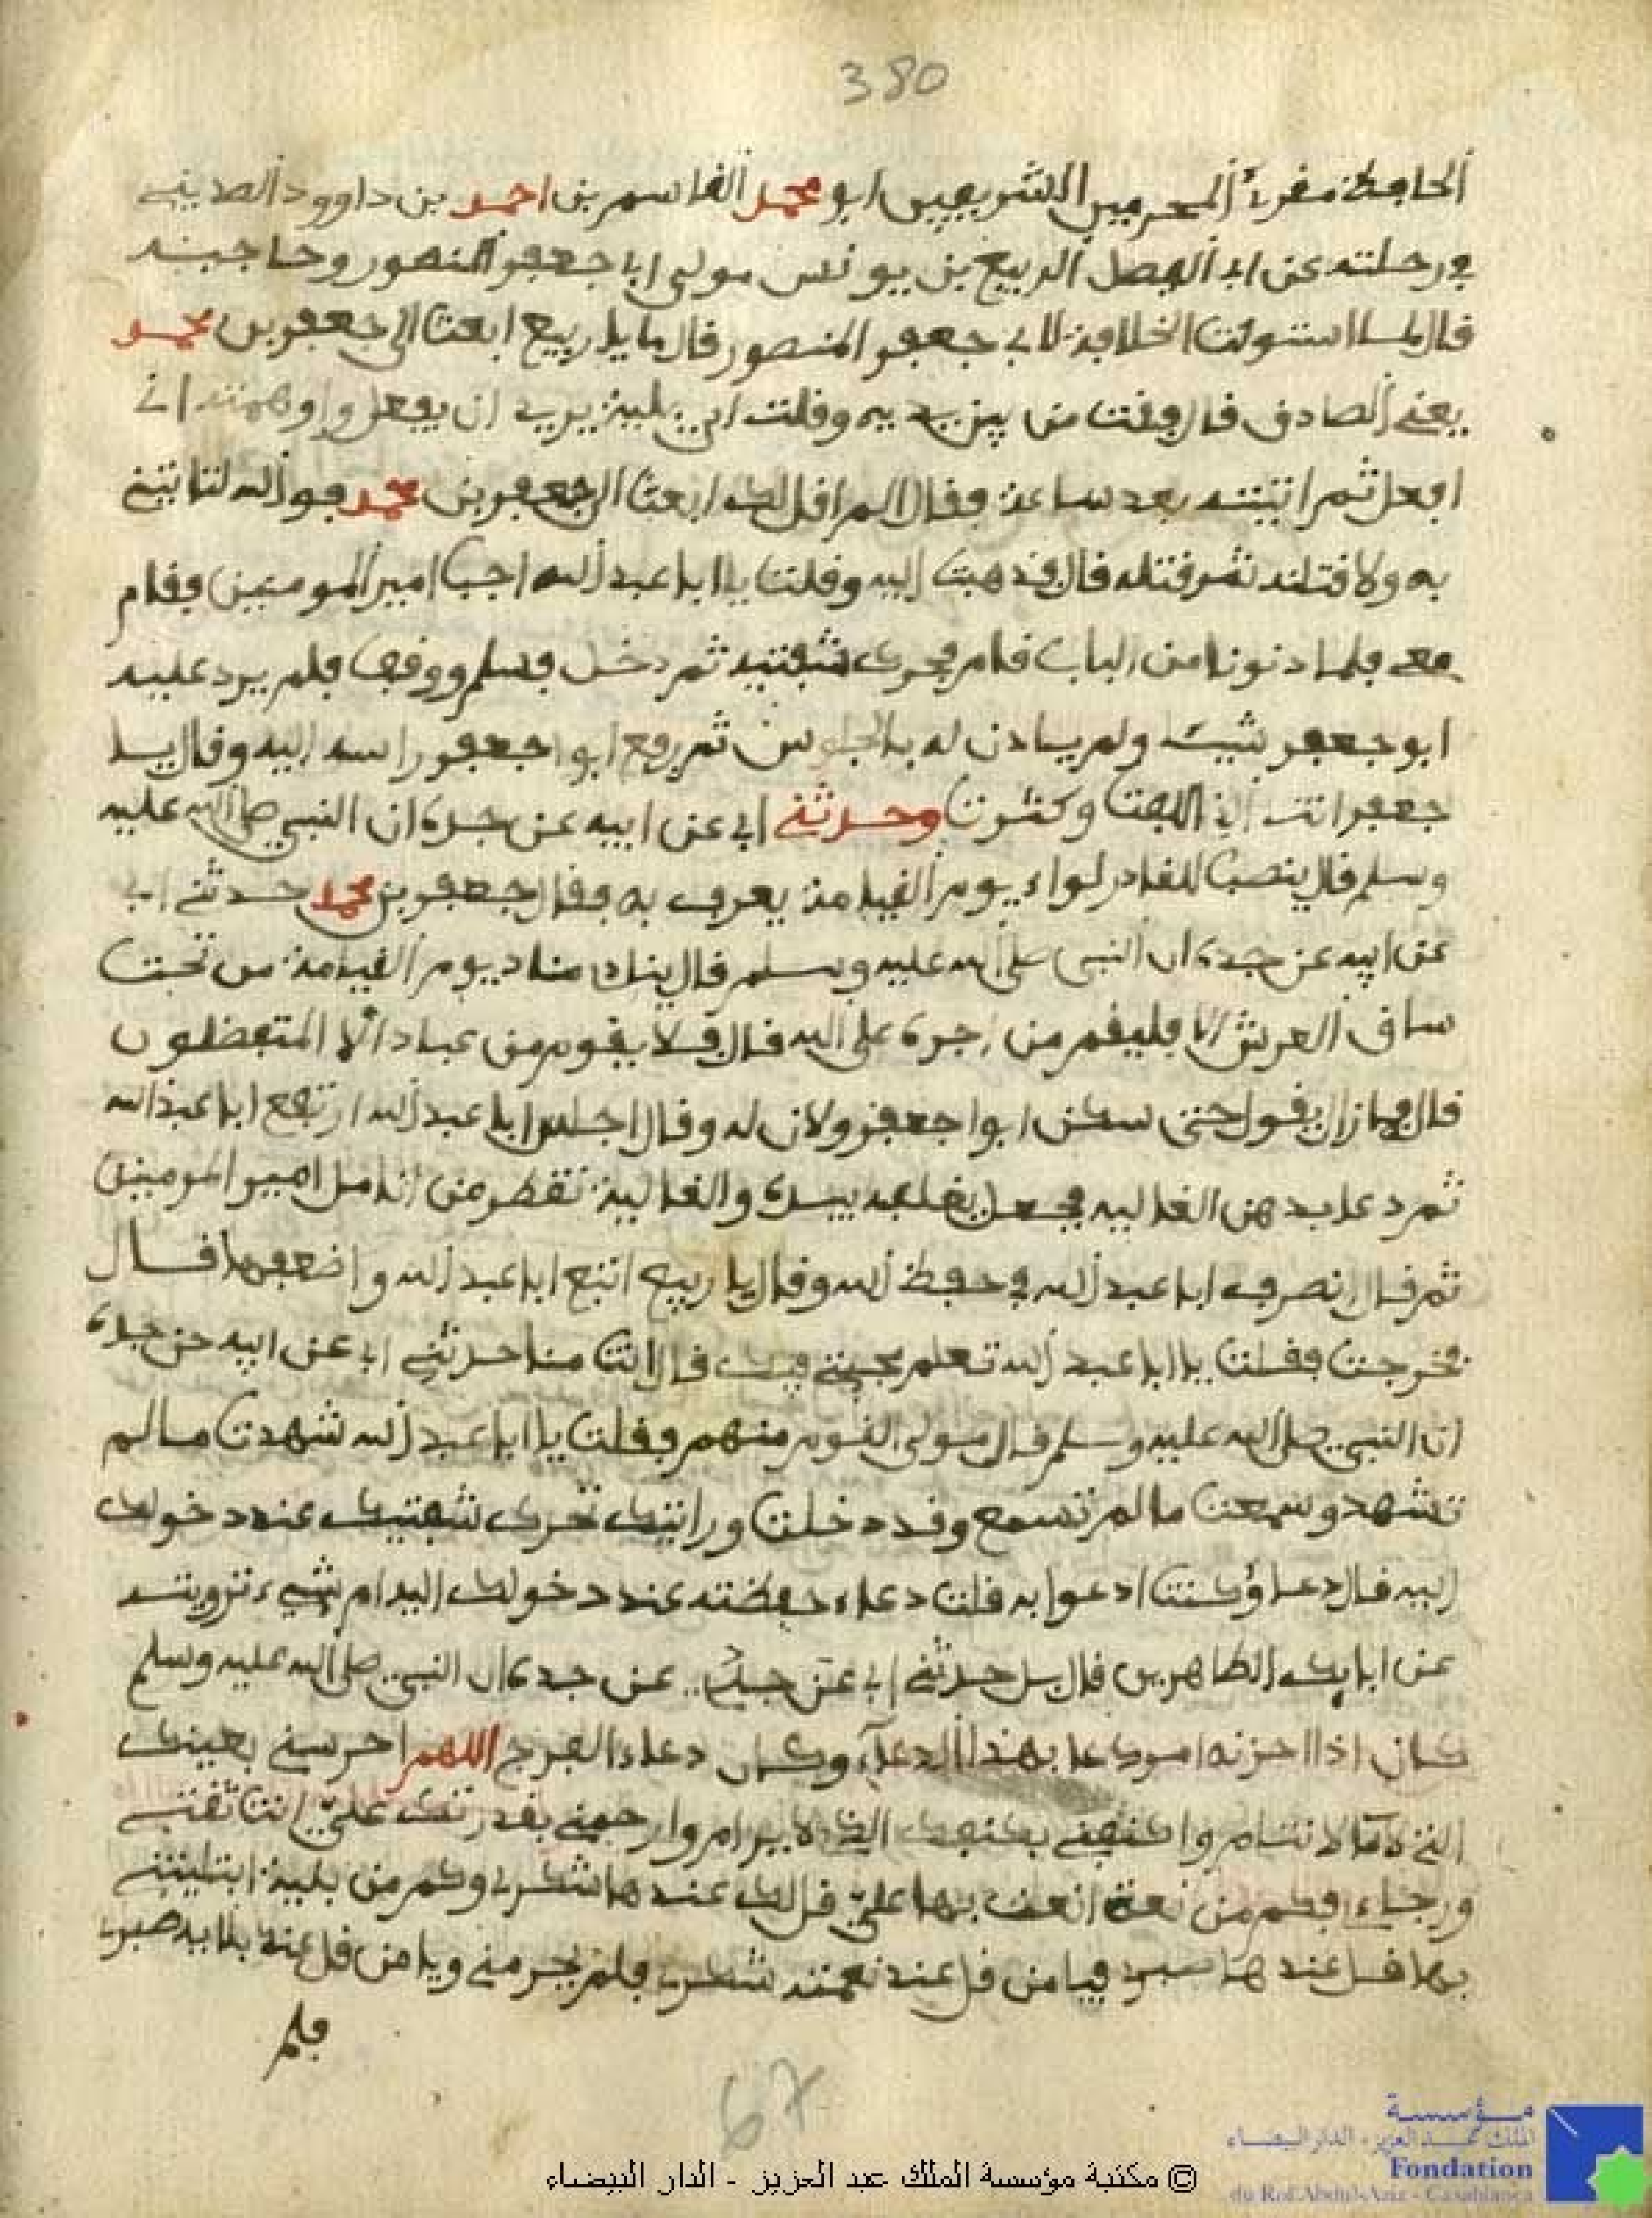 380
الحافظ مقرئ الحرمين الشريفين ابو محمد القاسم بن احمد بن داوود
في رحلته عن ابي الفضل الربيع بن يونس مولى ابا جعفر المنصور وحاجبه
قال لما استوت الخلافة لابي جعفر المنصور قال يا ربيع ابعث الى جعفر بن محمد
يعني الصادق قال فقمت من بين يديه وقلت اي بلية يريد ان يفعل واوهمته اني
افعل ثم اتيته بعد ساعة فقال الم اقل لك ابعث الى جعفر بن محمد فوالله لتاتيني
به ولا قتلنه شر قتله قال فذهبت اليه وقلت يا ابا عبد الله اجب امير المومنين فقام
معي فلما دنونا من الباب قام فحرك شفتيه ثم دخل فسلم ووقف فلم يرد عليه
ابو جعفر بشيء ولم ياذن له بالجلوس ثم رفع ابوا جعفر راسه اليه وقال يا
جعفر انت الذي البت وكثرت وحدثني ابي عن ابيه عن جده ان النبي صلى الله عليه
وسلم قال ينصب للغادر لواء يوم القيامة يعرف به فقال جعفر بن محمد حدثني ابي
عن ابيه عن جده ان النبي صلى الله عليه وسلم قال يناد مناد يوم القيامة من تحت
ساق العرش الا فليقم من اجره على الله قال فلا يقوم من عباد الا المتفضلون
قال فما زال يقول حتى سكن ابوا جعفر ولان له وقال اجلس ابا عبد الله ارتفع ابا عبد الله
ثم دعا بدهن الغاليه فجعل يغلفه بيده والغالية تقطر من انامل امير المومنين
ثم قال انصرف ابا عبد الله في حفظ الله وقال يا ربيع اتبع ابا عبد الله واضعفها قال
فخرجت فقلت يا ابا عبد الله تعلم محبتي فيك قال انت منا حدثني ابي عن ابيه عن جده
ان النبي صلى الله عليه وسلم قال مولى القوم منهم فقلت يا ابا عبد الله شهدت ما لم
تشهد وسمعت ما لم تسمع وقد دخلت ورايتك تحرك شفتيك عند دخولك
اليه قال دعاؤ كنت ادعوا به قلت دعاء حفظته عند دخولك اليه ام شيء ترويه
عن ابايك الطاهرين قال بل حدثني ابي عن جده ان النبي صلى الله عليه وسلم
كان اذا احزنه امر دعا بهذا الدعاء وكان دعاء الفرج اللهم احرسني بعينك
التي لا تنام واكنفني بكنفك الذي لا يرام وارحمني بقدرتك علي انت ثقتي
ورجاءي فكم من نعمة انعمت بها علي قل لك عندها شكري وكم من بلية ابتليتني
بها قل عندها صبري فيا من قل عند نعمته شكري فلم يحرمني ويا من قل عند بلايه صبري
فلم
67
© مكتبة مؤسسة الملك عبد العزيز - الدار البيضاء
مؤسسة
الملك عبد العزيز - الدار البيضاء
Fondation
du Roi Abdul-Aziz - Casablanca